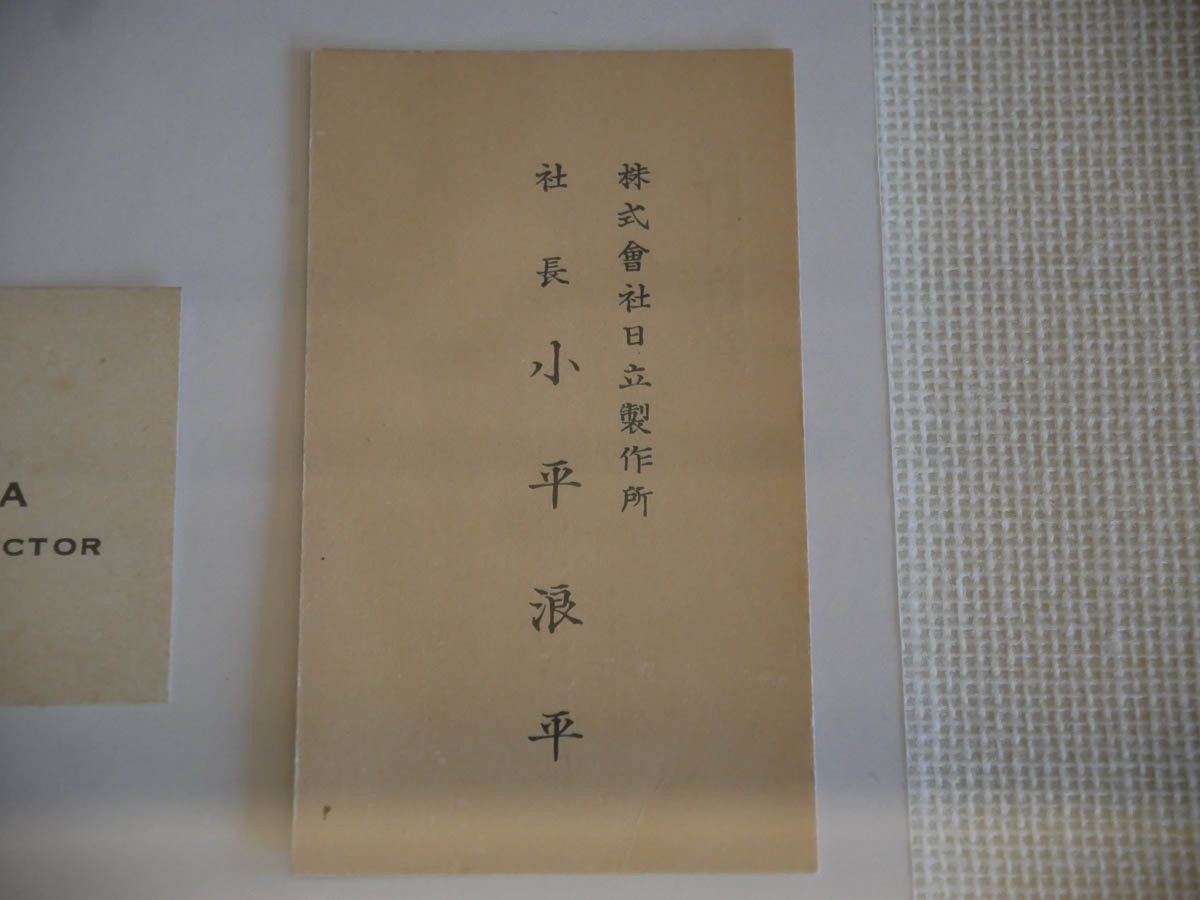 株式會社日立製作所
社長 小平浪平
A
CTOR